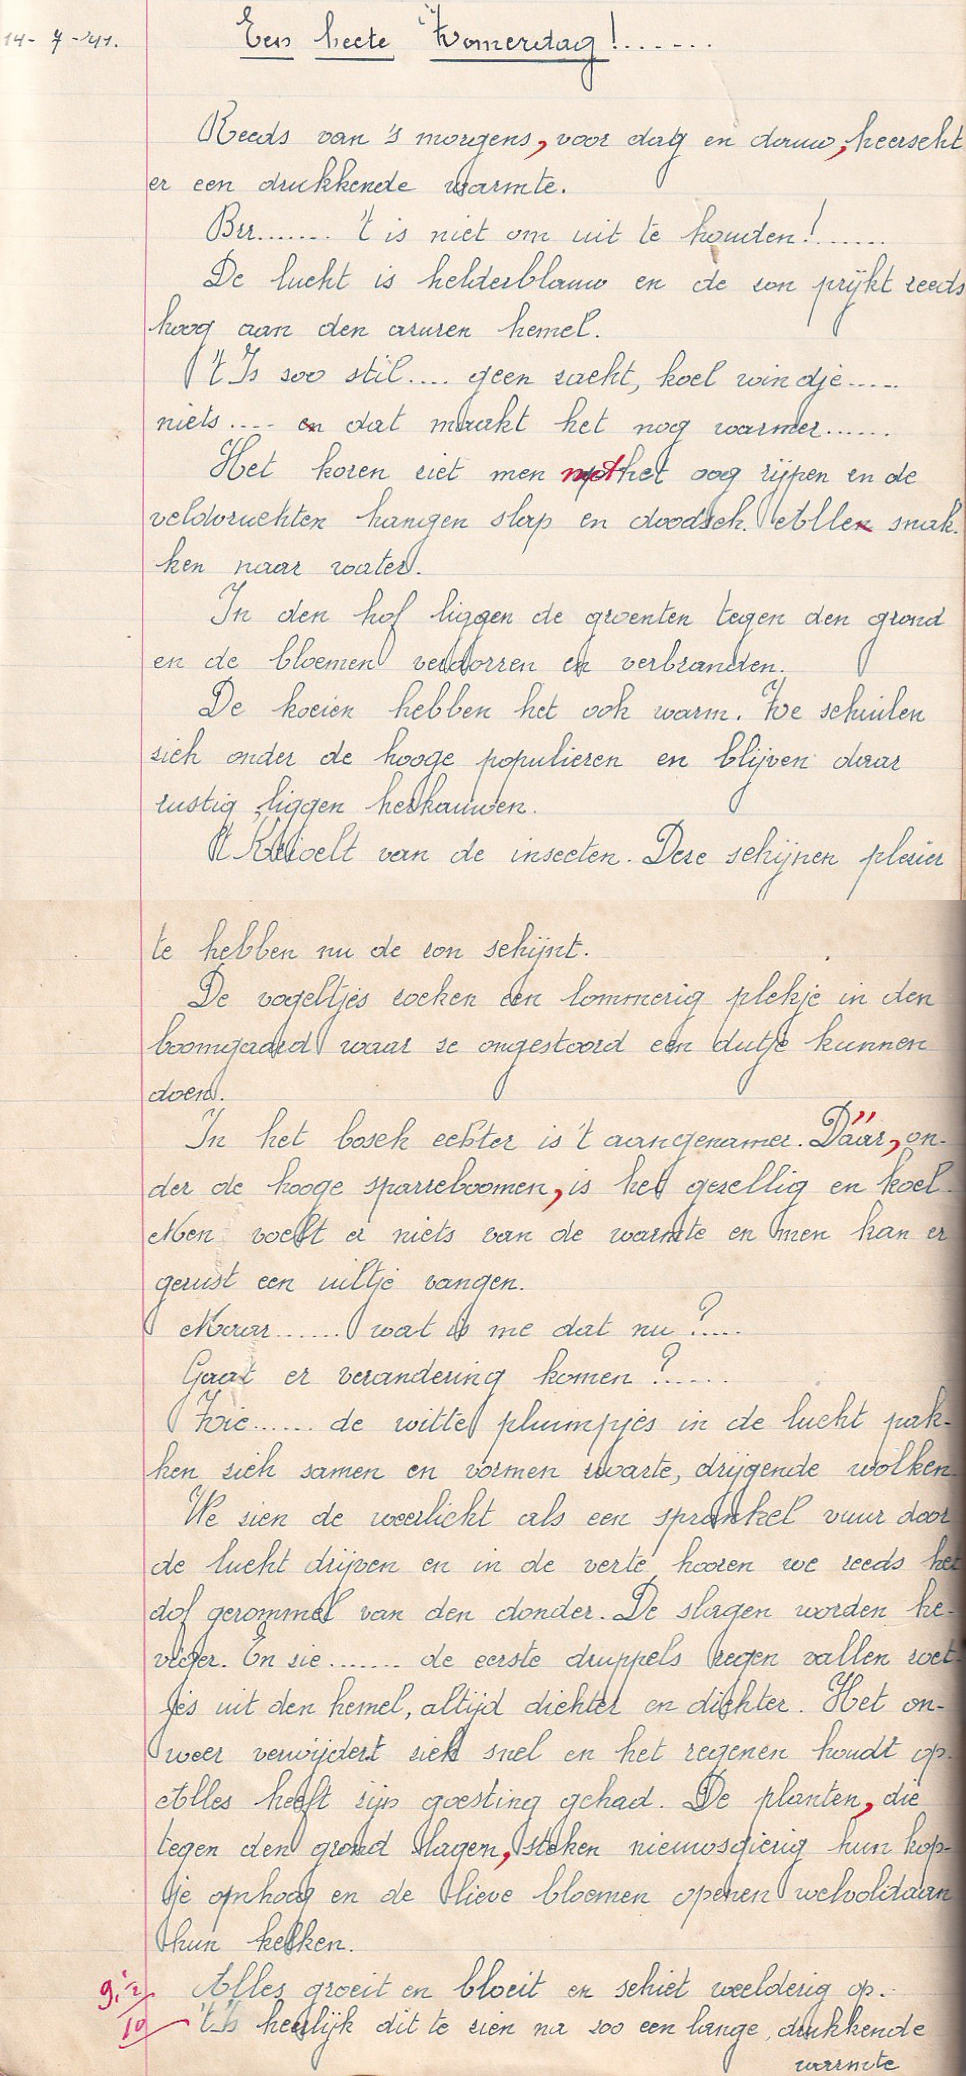 14-7-'41.
Een heete Zomerdag!.......
Reeds van 's morgens, voor dag en dauw, heerscht
er een drukkende warmte.
Brr....... 't is niet om uit te houden!......
De lucht is helderblauw en de zon prijkt reeds
hoog aan den azuren hemel.
't Is zoo stil.... geen zacht, koel windje.....
niets.... en dat maakt het nog warmer......
Het koren ziet men met het oog rijpen en de
veldvruchten hangen slap en doodsch. Allen snak-
ken naar water.
In den hof liggen de groenten tegen den grond
en de bloemen verdorren en verbranden.
De koeien hebben het ook warm. Ze schuilen
zich onder de hooge populieren en blijven daar
rustig liggen herkauwen.
't Krioelt van de insecten. Deze schijnen plezier
te hebben nu de zon schijnt.
De vogeltjes zoeken een lommerig plekje in den
boomgaard waar ze ongestoord een dutje kunnen
doen.
In het bosch echter is 't aangenamer. Dáár, on-
der de hooge sparreboomen, is het gezellig en koel.
Men voelt er niets van de warmte en men kan er
gerust een uiltje vangen.
Maar...... wat is me dat nu?.....
Gaat er verandering komen?......
Zie...... de witte pluimpjes in de lucht pak-
ken zich samen en vormen zwarte, drijgende wolken.
We zien de weerlicht als een sprankel vuur door
de lucht drijven en in de verte hooren we reeds het
dof gerommel van den donder. De slagen worden he-
viger. En zie....... de eerste druppels regen vallen zoet-
jes uit den hemel, altijd dichter en dichter. Het on-
weer verwijdert zich snel en het regenen houdt op.
Alles heeft zijn goesting gehad. De planten, die
tegen den grond lagen, steken nieuwsgierig hun kop-
je omhoog en de lieve bloemen openen welvoldaan
hun kelken.
Alles groeit en bloeit en schiet weelderig op.
't Is heerlijk dit te zien na zoo een lange, drukkende
warmte
9 1/2
10